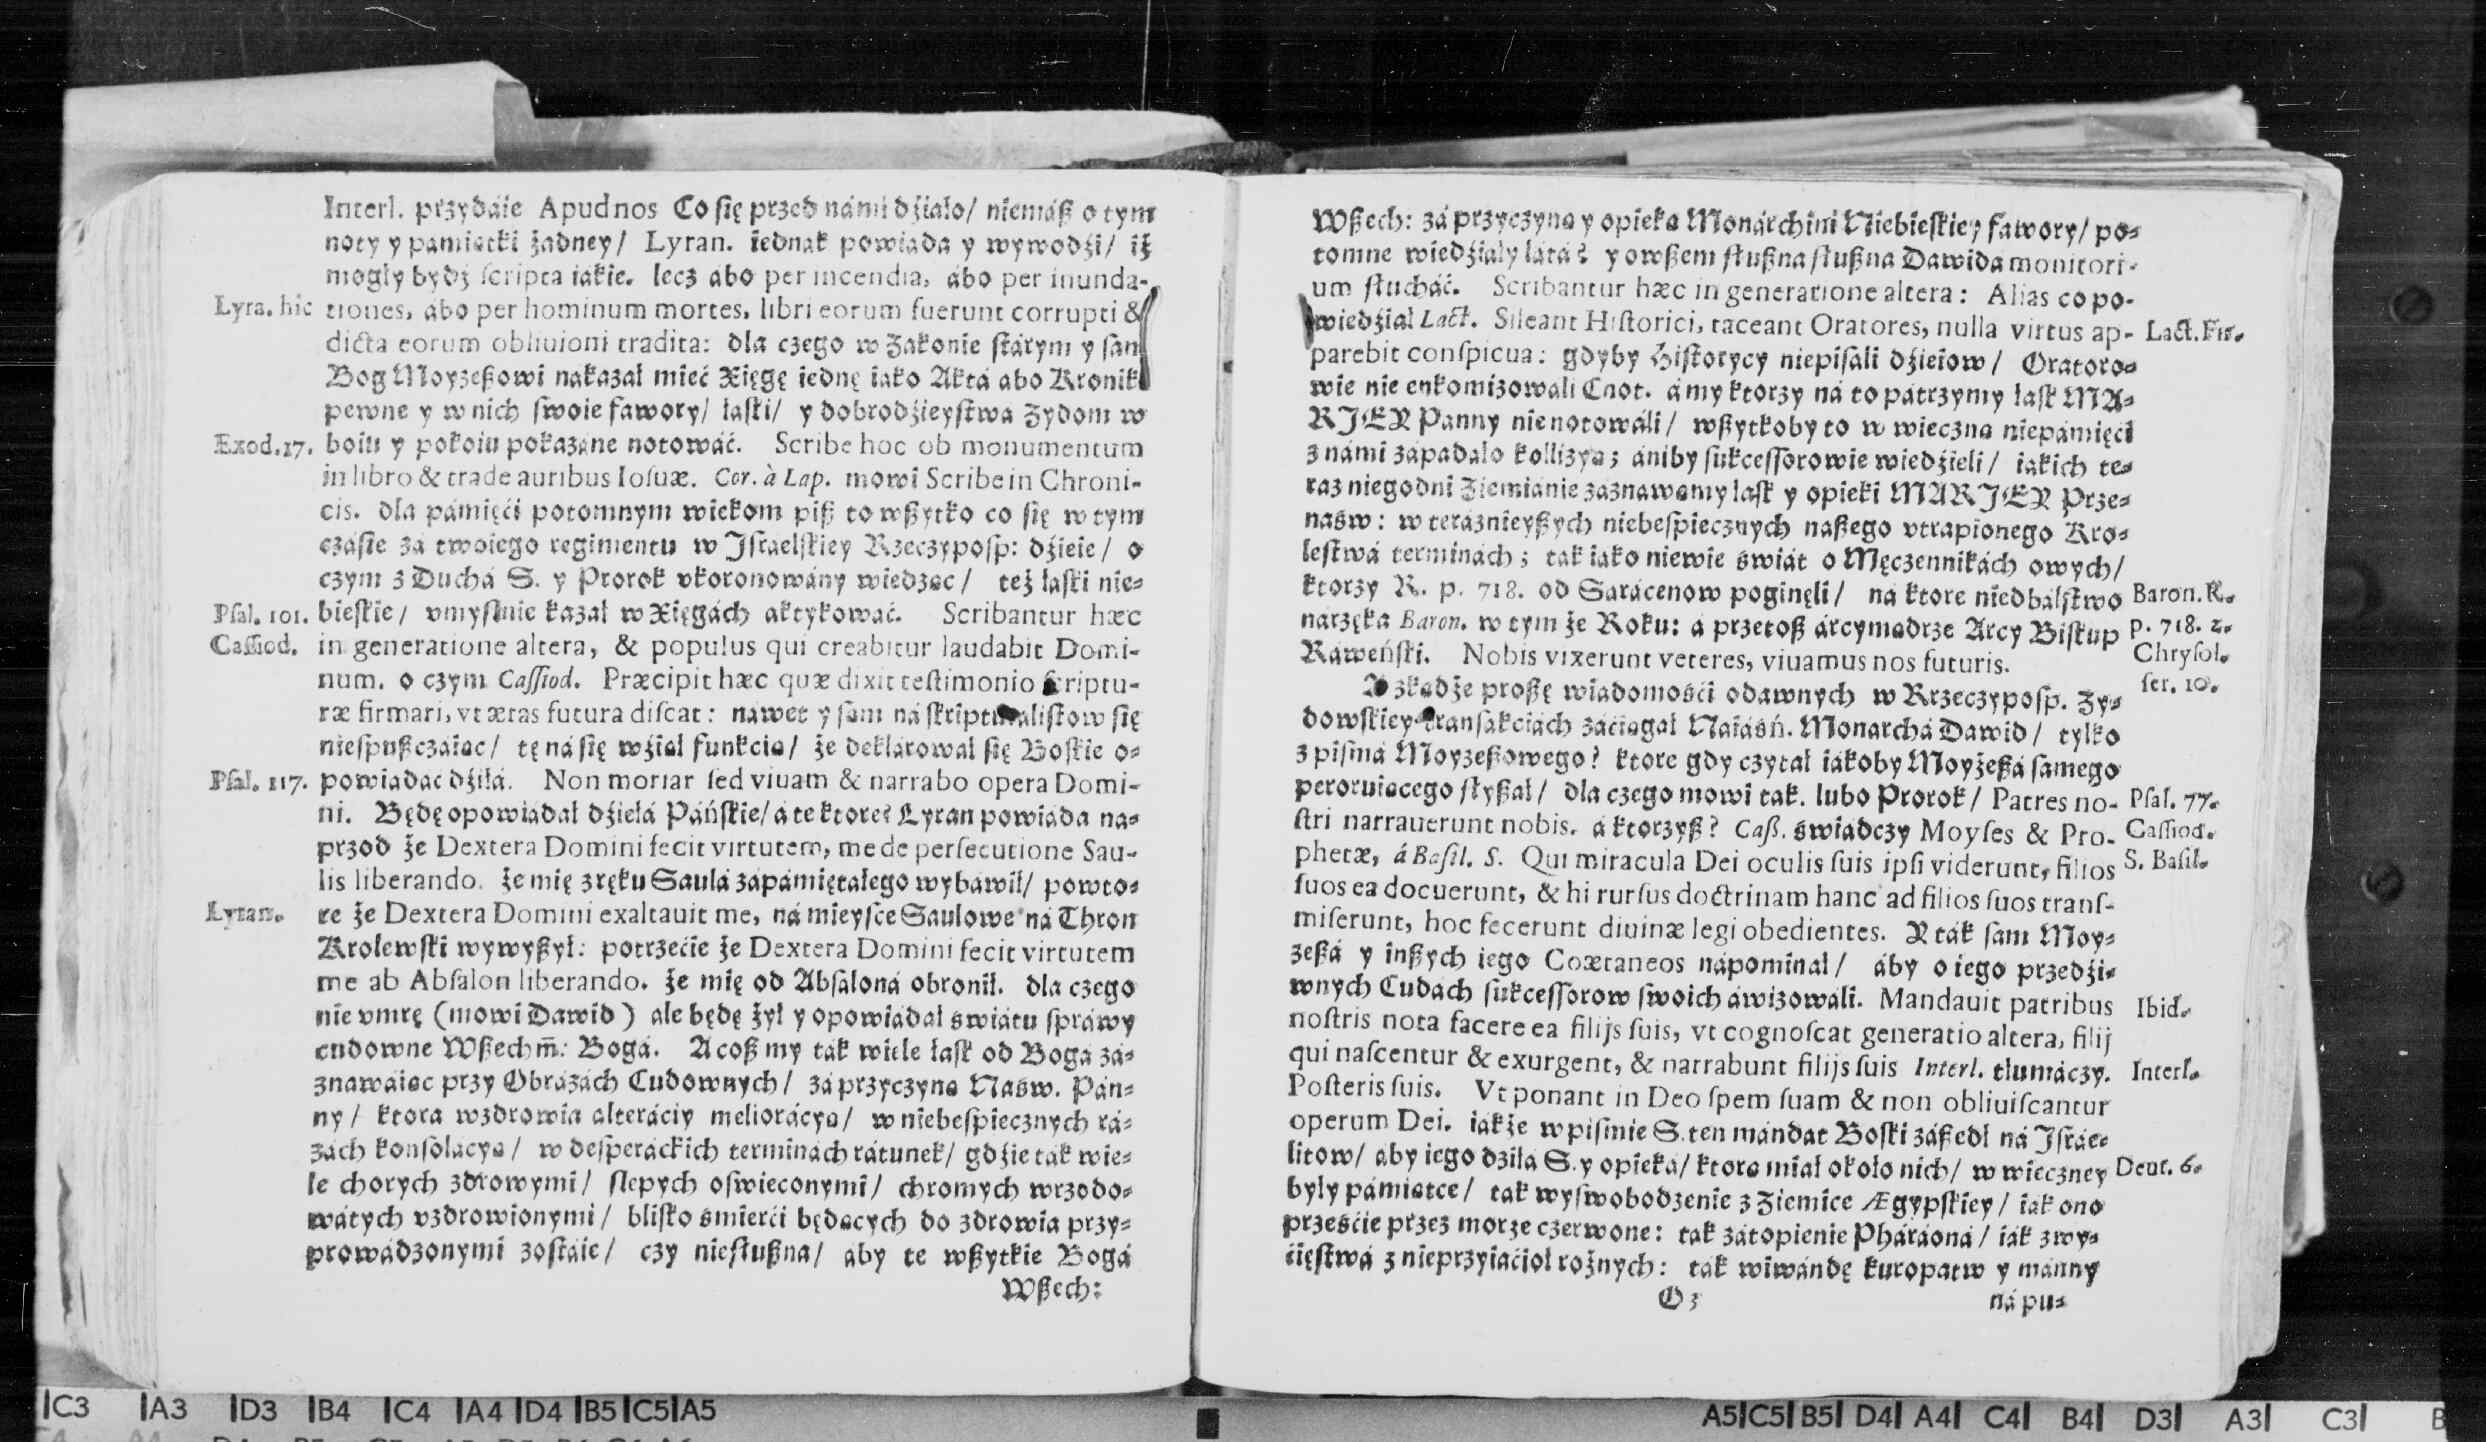 Interl. przydáie Apud nos Co się przed námi dźiało/ niemáß o tym
noty y pamiątki żadney/ Lyran. iednak powiáda y wywodźi/ iż
mogły bydź scripta iákie. lecz ábo per incendia, ábo per inunda-
Lyra. hic tiones, ábo per hominum mortes, libri eorum fuerunt corrupti &
dicta eorum obliuioni tradita: dla czego w Zakonie stárym y sam
Bog Moyzeßowi nakazał mieć Xięgę iednę iáko Aktá abo Kronik
pewne y w nich swoie fawory/ łáski/ y dobrodźieystwa Zydom w
Exod. 17. boiu y pokoiu pokazáne notowáć. Scribe hoc ob monumentum
in libro & trade auribus Iosuæ. Cor. à Lap. mowi Scribe in Chroni-
cis. dla pámięći potomnym wiekom piß to wßytko co się w tym
czásie zá twoiego regimentu w Jsraelskiey Rzeczyposp: dźieie/ o
czym z Duchá S. y Prorok vkoronowány wiedząc/ też łaski nie-
Psal. 101. bieskie/ vmyslnie kazał w Xięgách aktykowáć. Scribantur hæc
Cassiod. in generatione altera, & populus qui creabitur laudabit Domi-
num. o czym Cassiod. Præcipit hæc quæ dixit testimonio scriptu-
ræ firmari, vt ætas futura discat: náwet y sam ná skripturalistow się
niespußczáiąc/ tę ná się wźiął funkcią/ że deklárował się Boskie o-
Psal. 117. powiádáć dźiłá. Non moriar sed viuam & narrabo opera Domi-
ni. Będę opowiádał dźiełá Páńskie/ á te ktore? Lyran powiáda na-
przod że Dextera Domini fecit virtutem, me de persecutione Sau-
lis liberando. że mię z ręku Saulá zápámiętałego wybáwił/ powto-
Lyran. re że Dextera Domini exaltauit me, ná mieysce Saulowe ná Thron
Krolewski wywyßył: potrzećie że Dextera Domini fecit virtutem
me ab Absalon liberando. że mię od Absaloná obronił. dla czego
nie vmrę (mowi Dawid) ale będę żył y opowiádał swiátu spráwy
cudowne Wßechm̃: Bogá. A coß my ták wiele łask od Bogá zá-
znawáiąc przy Obrázách Cudownych/ zá przyczyną Naśw. Pán-
ny/ ktora w zdrowia álteráciy meliorácyą/ w niebespiecznych rá-
zách konsolácyą/ w desperáckich terminách rátunek/ gdźie ták wie-
le chorych zdrowymi/ slepych oświeconymi/ chromych wrzodo-
wátych vzdrowionymi/ blisko śmierći będących do zdrowia przy-
prowádzonymi zostáie/ czy niesłußna/ áby te wßytkie Bogá
Wßech:
Wßech: zá przyczyną y opieką Monárchini Niebieskiey fawory/ po-
tomne wiedźiáły látá? y owßem słußna słußna Dawidá monitori-
um słucháć. Scribantur hæc in generatione altera: Alias co po-
wiedźiał Lact. Sileant Historici, taceant Oratores, nulla virtus ap- Lact. Fir.
parebit conspicua: gdyby Historycy niepisáli dźieiow/ Orátoro-
wie nie enkomizowáli Cnot. á my ktorzy ná to pátrzymy łásk MA-
RJEY Panny nie notowáli/ wßytkoby to w wieczną niepámięći
z námi západáło kollizyą; ániby sukcessorowie wiedźieli/ iákich te-
raz niegodni Ziemiánie záznawamy łask y opieki MARJEY Prze-
naśw: w teráznieyßych niebespiecznych náßego vtrapionego Kro-
lestwá terminách; ták iáko niewie świát o Męczennikách owych/
ktorzy R. p. 718. od Sarácenow poginęli/ ná ktore niedbálstwo Baron. R.
nárzęka Baron. w tym że Roku: á przetoß árcymądrze Arcy Biskup p. 718. z.
Ráweński. Nobis vixerunt veteres, viuamus nos futuris. Chrysol.
ser. 10.
A zkądże proßę wiádomości o dawnych w Rzeczyposp. Zy-
dowskiey transakciách záciągał Naiáśń. Monarchá Dawid/ tylko
z pismá Moyzeßowego? ktore gdy czytał iákoby Moyżeßá sámego
peroruiącego słyßał/ dla czego mowi ták. lubo Prorok/ Patres no- Psal. 77.
stri narrauerunt nobis. á ktorzyß? Caß. świadczy Moyses & Pro- Cassiod.
phetæ, á Basil. S. Qui miracula Dei oculis suis ipsi viderunt, filios S. Basil.
suos ea docuerunt, & hi rursus doctrinam hanc ad filios suos trans-
miserunt, hoc fecerunt diuinæ legi obedientes. Y ták sam Moy-
zeßá y inßych iego Coætaneos nápominał/ áby o iego przedźi-
wnych Cudách sukcessorow swoich áwizowáli. Mandauit patribus Ibid.
nostris nota facere ea filijs suis, vt cognoscat generatio altera, filij
qui nascentur & exurgent, & narrabunt filijs suis Interl. tłumáczy. Interl.
Posteris suis. Vt ponant in Deo spem suam & non obliuiscantur
operum Dei. iákże w piśmie S. ten mándat Boski záßedł ná Jsráe-
litow/ aby iego dźiłá S. y opieká/ ktorą miał około nich/ w wieczney Deut. 6.
były pámiątce/ ták wyswobodzenie z Ziemice Ægypskiey/ iák ono
prześćie przez morze czerwone: ták zátopienie Pháraoná/ iák zwy-
ćięstwá z nieprzyiaćioł rożnych: ták wiwándę kuropatw y mánny
O 3 ná pu-
C3 A3 D3 B4 C4 A4 D4 B5 C5 A5
A5 C5 B5 D4 A4 C4 B4 D3 A3 C3 B